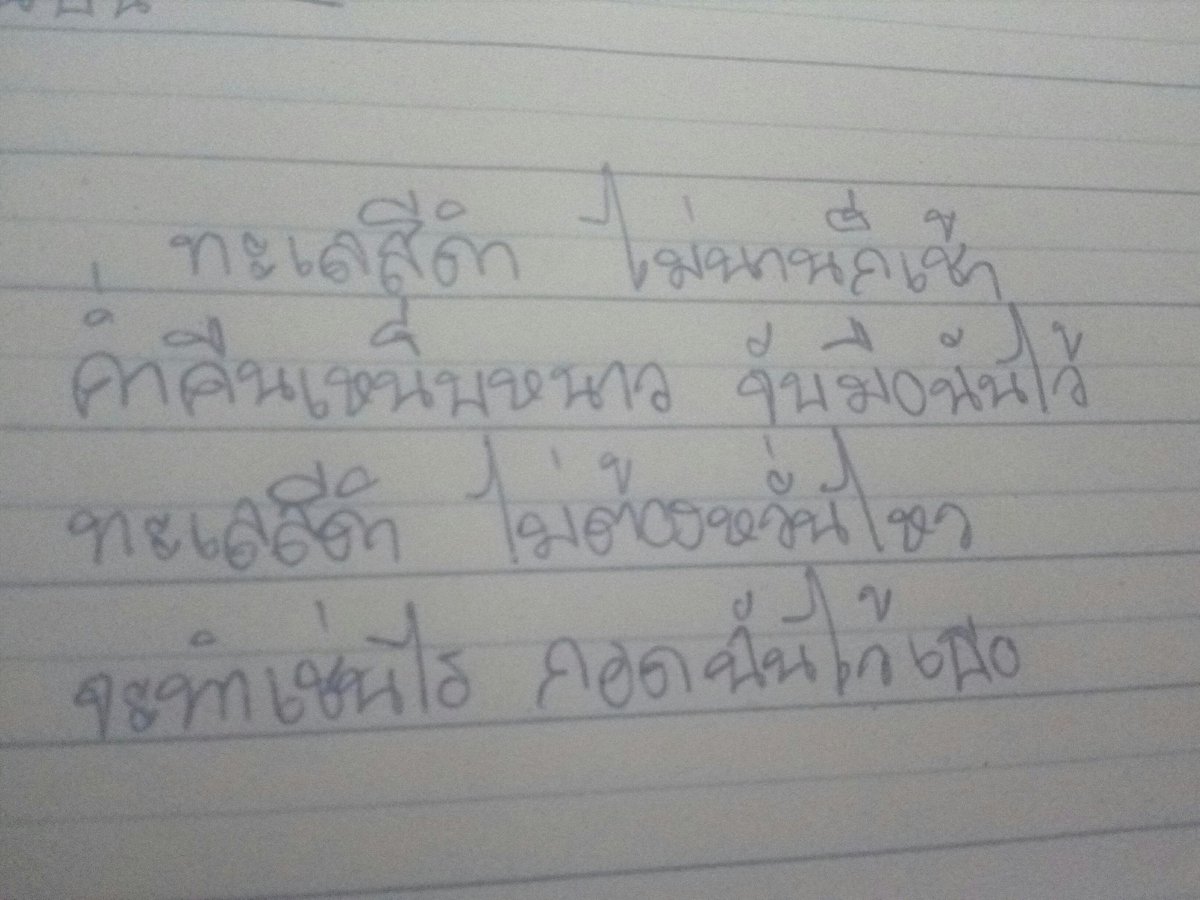 ทะเลสีดำ ไม่นานก็เช้า
ค่ำคืนเหน็บหนาว จับมือฉันไว้
ทะเลสีดำ ไม่ต้องหวั่นไหว
จะทำเช่นไร กอดฉันไว้เธอ